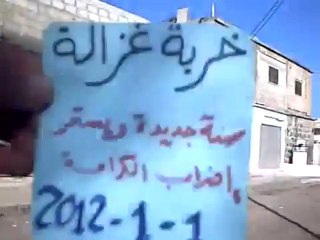 خربة غزالة
سنة جديدة ويستمر
إضراب الكرامة
2012-1-1